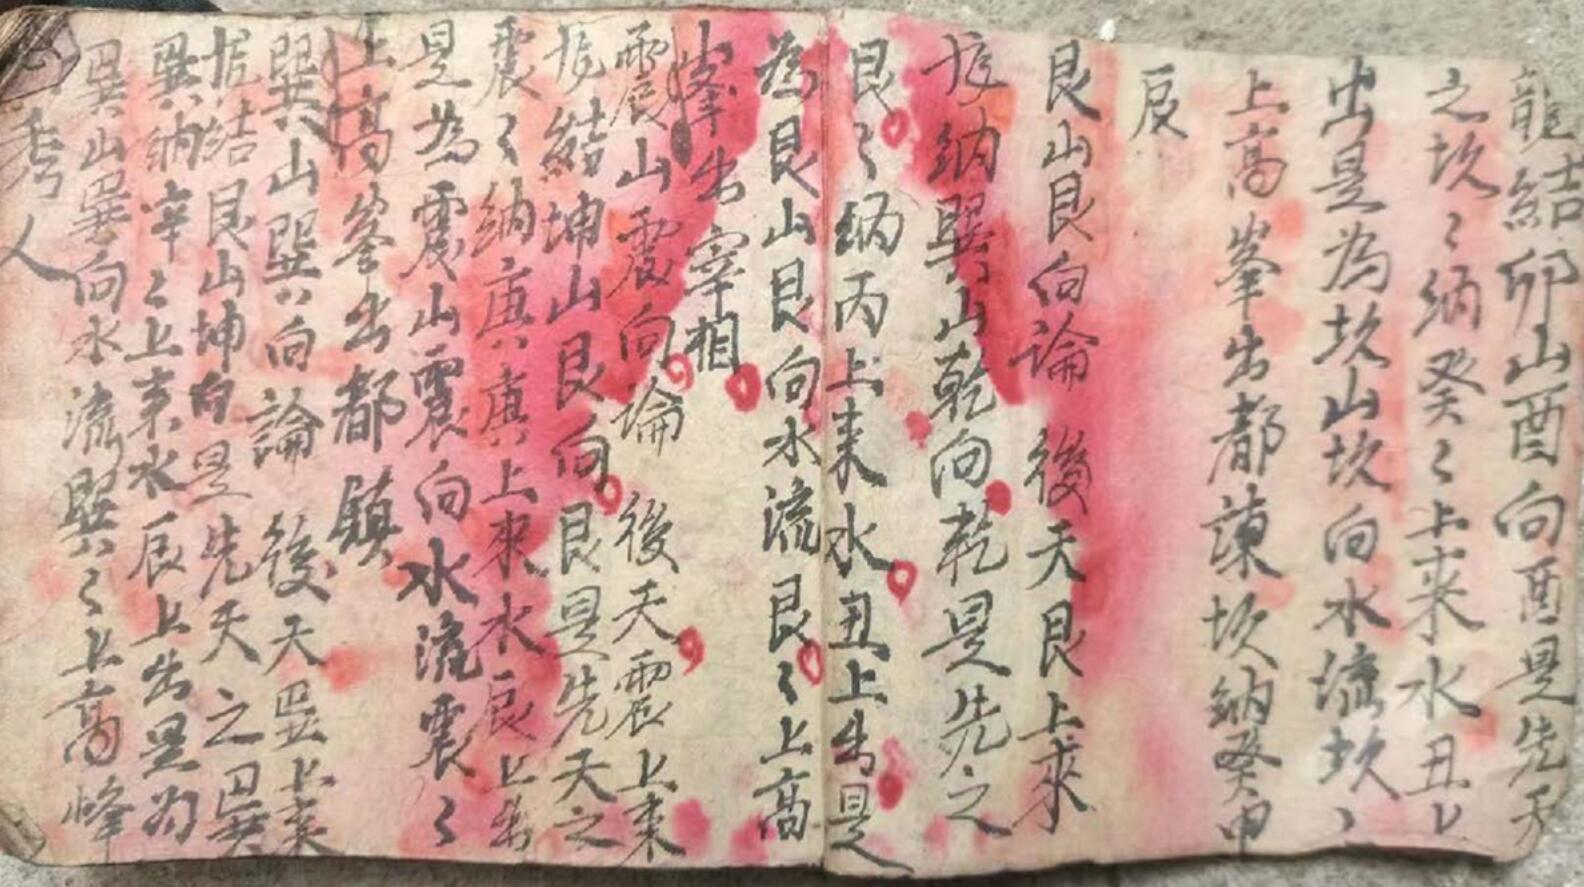 龍結卯山酉向酉是先天
之坎〻納癸〻上来水丑上
出是為坎山坎向水流坎〻
上高峯出都諫坎納癸申
辰
艮山艮向論 後天艮上來
龍納巽山乾向乾是先之
艮〻納丙上来水丑上出是
為艮山艮向水流艮〻上高
峯出宰相
震山震向論 後天震上来
龍結坤山艮向艮是先天之
震〻納庚庚上來水辰上出
是為震山震向水流震〻
上高峯出都鎮
巽山巽向論 後天巽上来
龍结艮山坤向是先天之巽
巽納辛〻上来水辰上出是為
巽山巽向水流巽〻上高峰
秀人